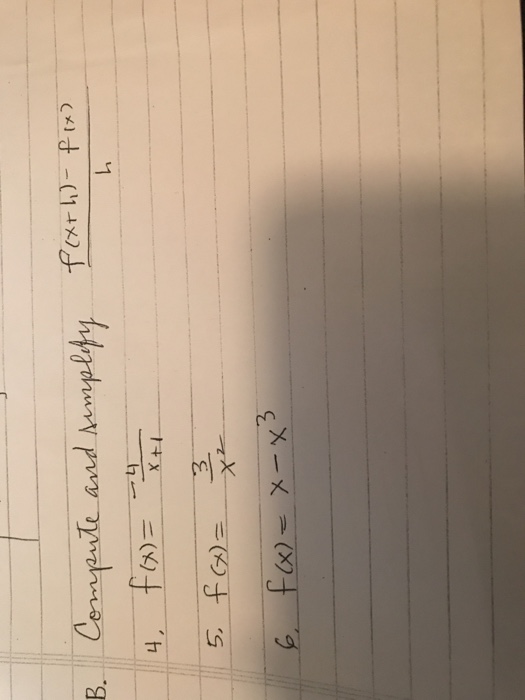 B. Compute and simplify f(x+h) - f(x) / h
4. f(x) = -4 / x+1
5. f(x) = 3 / x²
6. f(x) = x - x³